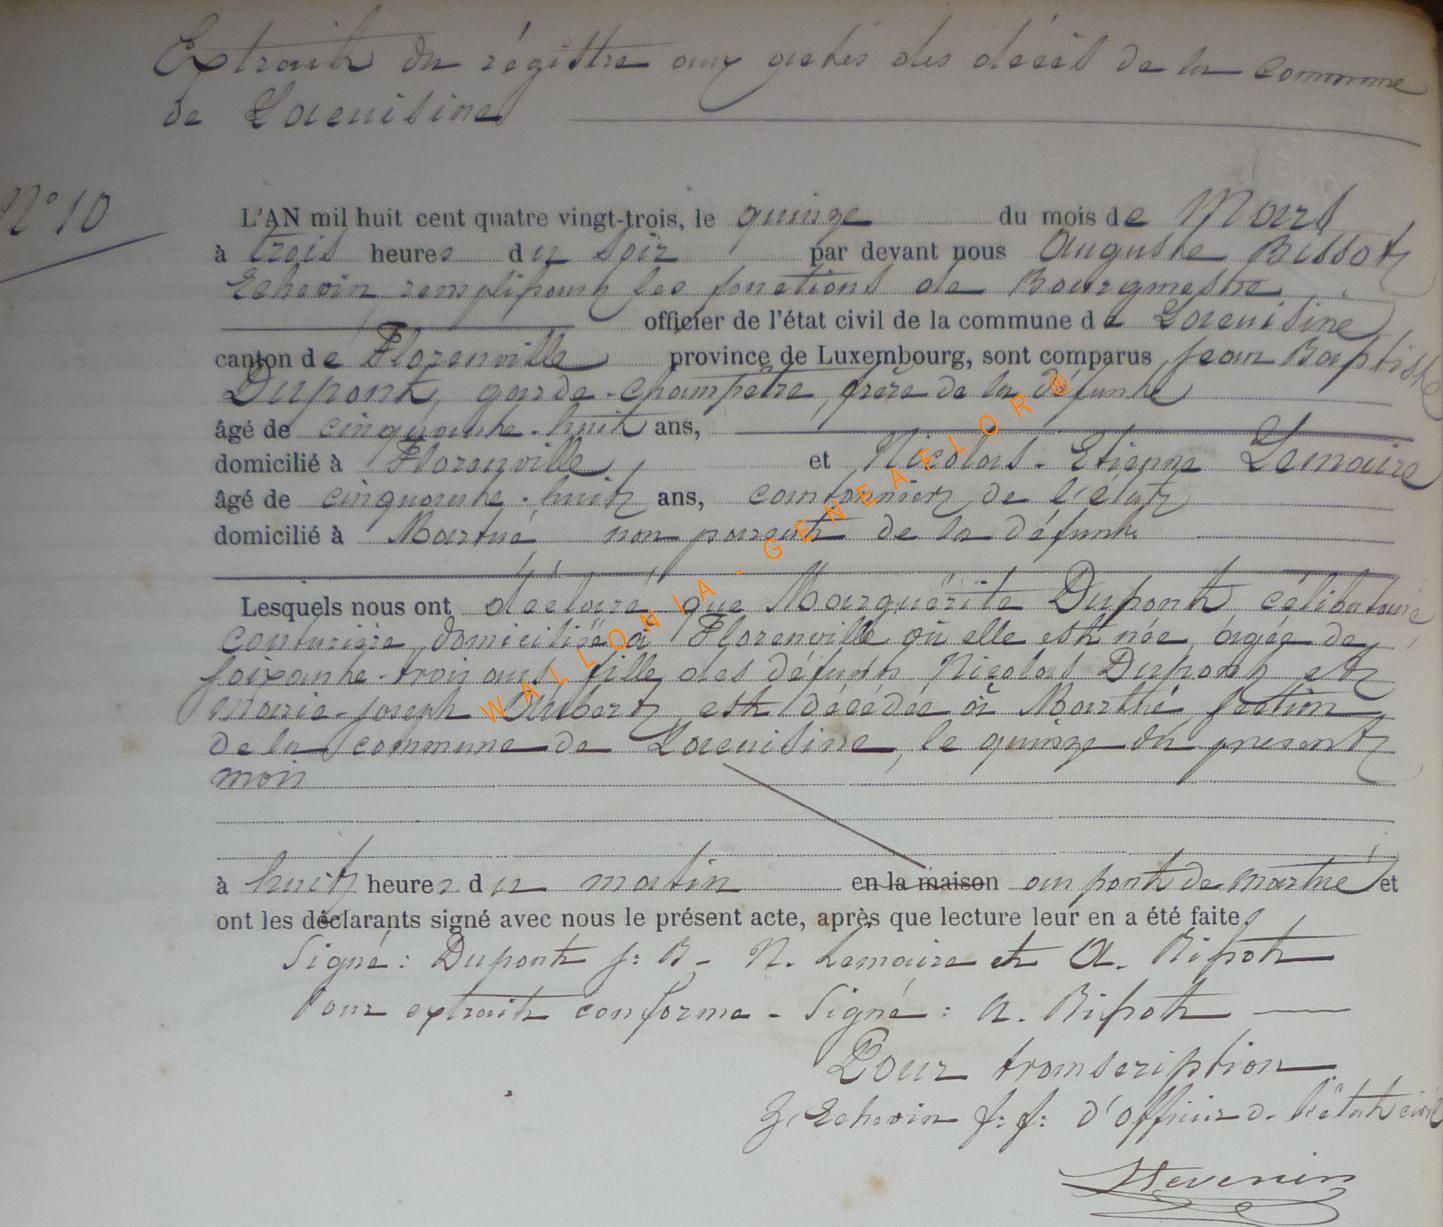 Extrait du régistre aux actes des décès de la commune
de Lacuisine
N° 10
L'AN mil huit cent quatre vingt-trois, le quinze du mois de Mars
à trois heures du soir par devant nous Auguste Bissot
Echevin remplissant les fonctions de Bourgmestre
officier de l'état civil de la commune de Lacuisine
canton de Florenville province de Luxembourg, sont comparus Jean Baptiste
Dupont, garde-champêtre, frère de la défunte
âgé de cinquante-huit ans,
domicilié à Florenville et Nicolas-Etienne Lemaire
âgé de cinquante-huit ans, cantonnier de l'état
domicilié à Martué non parent de la défunte
Lesquels nous ont déclaré que Marguerite Dupont célibataire
couturière, domiciliée à Florenville où elle est née, âgée de
soixante-trois ans, fille des défunts Nicolas Dupont et
Marie-Joseph Aubert, est décédée à Martué, section
de la commune de Lacuisine, le quinze du present
mois
à huit heures du matin en la maison au pont de Martué et
ont les déclarants signé avec nous le présent acte, après que lecture leur en a été faite
Signé: Dupont J: B- N. Lemaire et A. Bissot
Pour extrait conforme - Signé: A. Bissot
Pour transcription
L'Echevin f: f: d'officier de l'état civil
Stevenin
WALLONIA-GENEAFLOR®